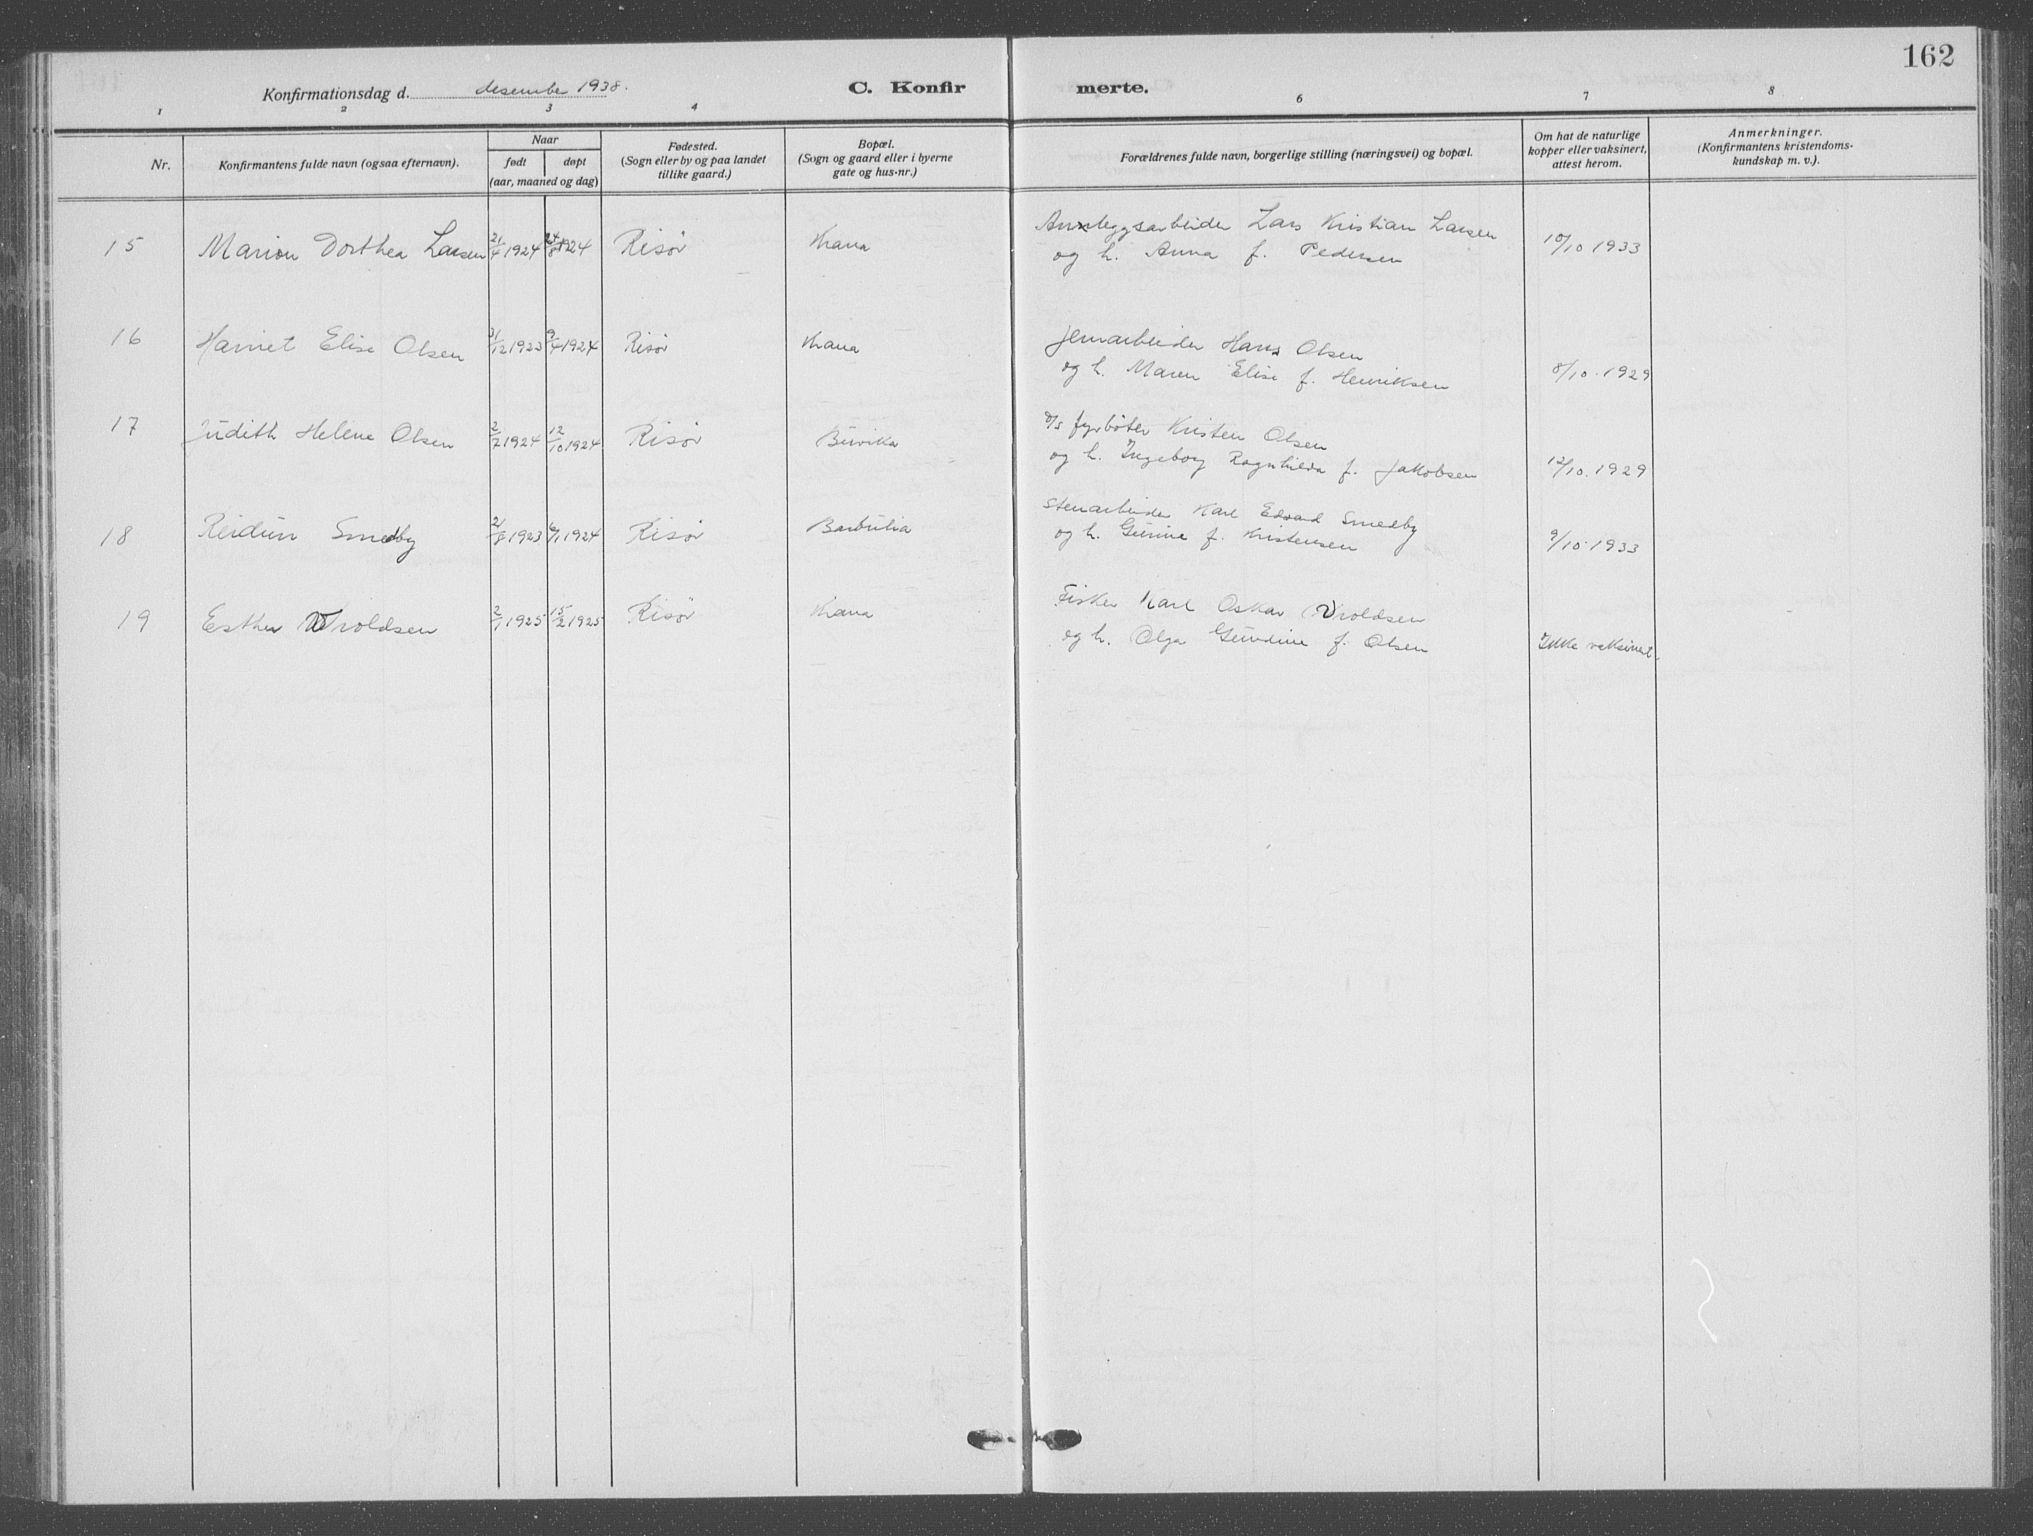 162
Konfirmationsdag d. desember 1938.
C. Konfirmerte.
1 2 3 4 6 7 8
Nr.
Konfirmantens fulde navn (ogsaa efternavn).
Naar
født døpt
(aar, maaned og dag)
Fødested.
(Sogn eller by og paa landet
tillike gaard.)
Bopæl.
(Sogn og gaard eller i byerne
gate og hus-nr.)
Forældrenes fulde navn, borgerlige stilling (næringsvei) og bopæl.
Om hat de naturlige
kopper eller vaksinert,
attest herom.
Anmerkninger.
(Konfirmantens kristendoms-
kundskap m. v.).
15 Marion Dorthea Larsen 21/4 1924 24/8 1924 Risør Krana Anleggsarbeider Lars Kristian Larsen 10/10 1933
og h. Anna f. Pedersen
16 Harriet Elise Olsen 31/12 1923 9/4 1924 Risør Krana Jernarbeider Hans Olsen
og h. Maren Elise f. Henriksen 8/10. 1929
17 Judith Helene Olsen 2/7 1924 12/10 1924 Risør Buvika D/S fyrbøter Kristen Olsen
og h. Ingeborg Ragnhilda f. Jakobsen 12/10. 1929
18 Reidun Smedby 21/8 1923 6/1 1924 Risør Barbulia Stenarbeider Karl Edvard Smedby
og h. Gurine f. Kristensen 9/10. 1933
19 Esther Vroldsen 2/1 1925 15/2 1925 Risør Krana Fisker Karl Oskar Vroldsen
og h. Olga Gundine f. Olsen Ikke vaksinert.